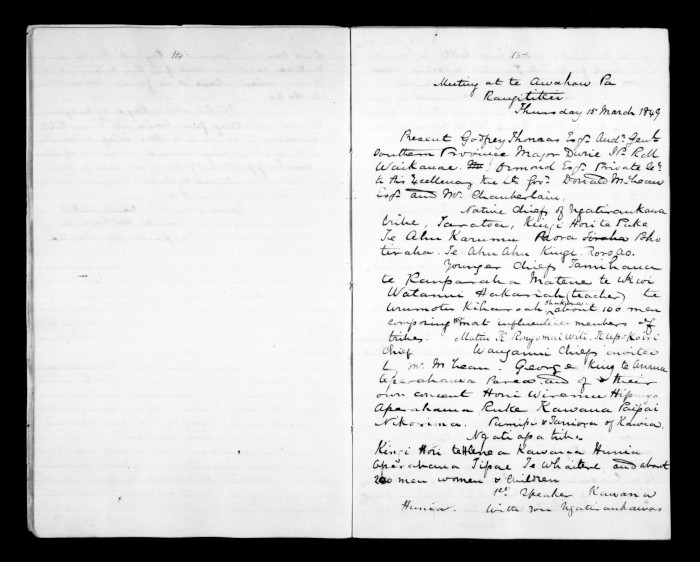 14.
15.
Meeting at te Awahow Pa
Rangitikei
Thursday 15 March 1849
Present Godfrey Thomas Esqr. Audr. Genl.
Southern Province Major Durie
Waikanae. Ormond Esqr. Private Secy.
to His Excellency the Lt. Govr. Donald McLean
Esqr. and Mr. Chamberlain,
Native Chiefs of Ngatiraukawa
tribe, Taratoa, Kingi Hori te Puke
Te Ahu Karamu Paora
Te Ahu Ahu Kingi.
Younger Chiefs Tamihana
te Rauparaha Matene te Wiwi
Watanui Hakaraiah (teacher) te
about 100 men
composing the most influential members of
tribes.
Chief Wanganui Chiefs invited
by Mr. McLean. George King te Anaua
Aperahama and of their
own consent Hori Wiremu
Aperahama Ruke Kawana Paipai
Nikorima.
Ngatiapa tribe
Kingi Hori Kawana Hunia
Aperahama Tipae Te Whaitere and about
200 men women & Children
1st. Speaker Kawana
Hunia. With you Ngatiraukawas